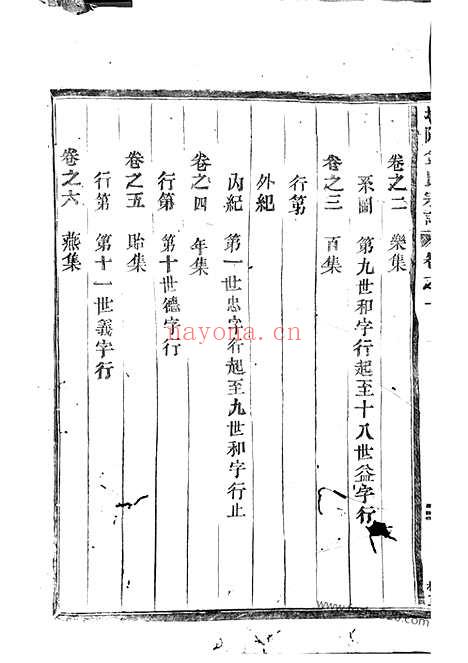 卷之二 樂集
系圖 第九世和字行起至十八世益字行
卷之三 百集
行第
外紀
內紀 第一世忠字行起至九世和字行止
卷之四 年集
行第 第十世德字行
卷之五 貽集
行第 第十一世義字行
卷之六 燕集
nayona.cn